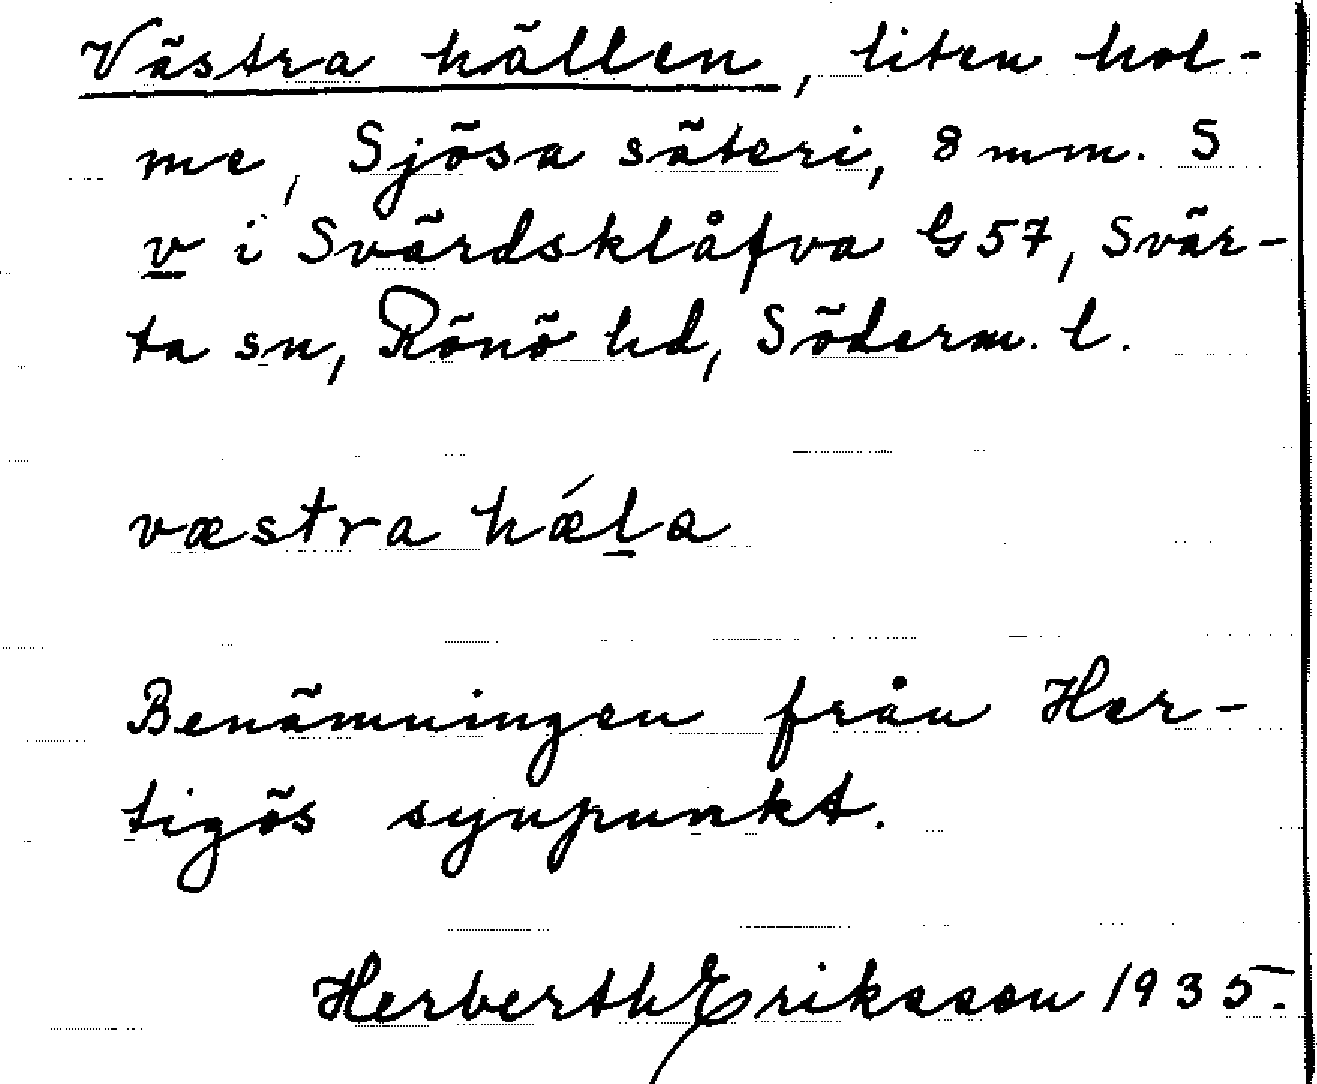 Västra hällen, liten hol-
me, Sjösa säteri, 8 mm. S
v i Svärdsklåfva G57, Svär-
ta sn, Rönö hd, Söderm. l.
væstra hǽla
Benämningen från Her-
tigös synpunkt.
Herberth Eriksson 1935.